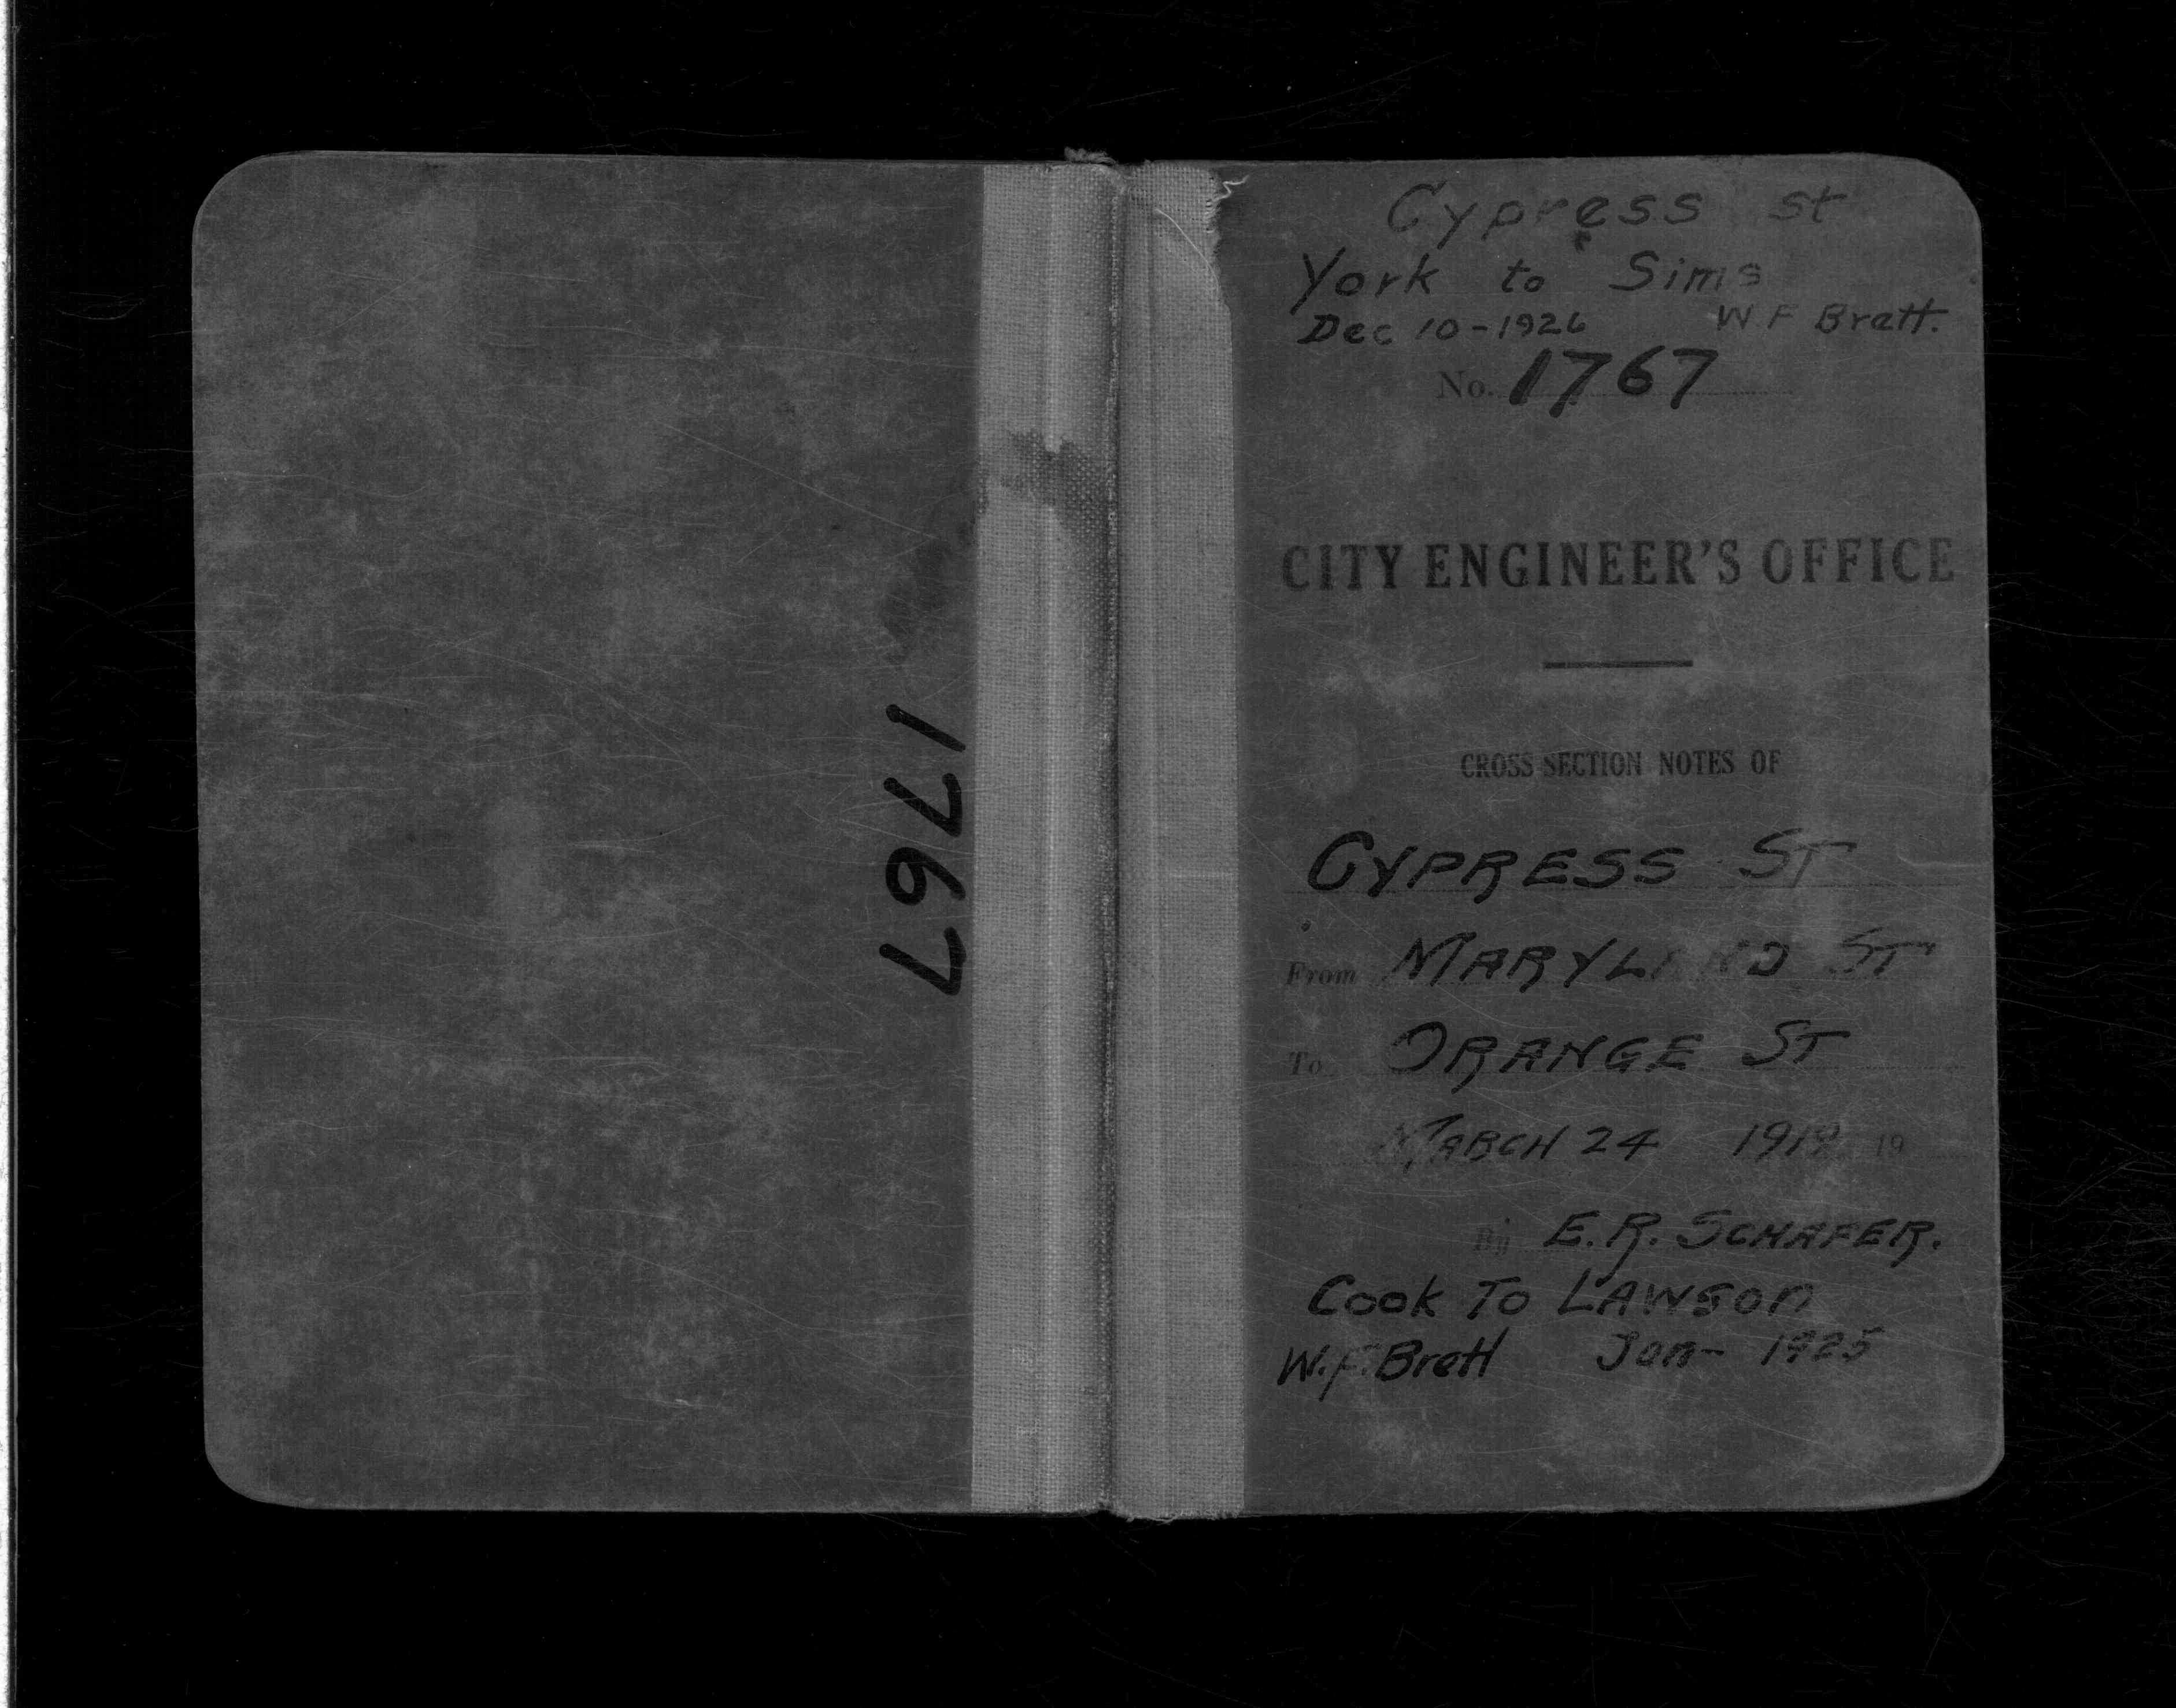 1767
Cypress st
York to Sims
Dec 10-1926 W F Brett.
No. 1767
CITY ENGINEER'S OFFICE
CROSS SECTION NOTES OF
CYPRESS ST
From MARYLAND ST
To ORANGE ST
MARCH 24 1918 19
By E. R. SCHAFER.
Cook To LAWSON
W.F. Brett Jan- 1925